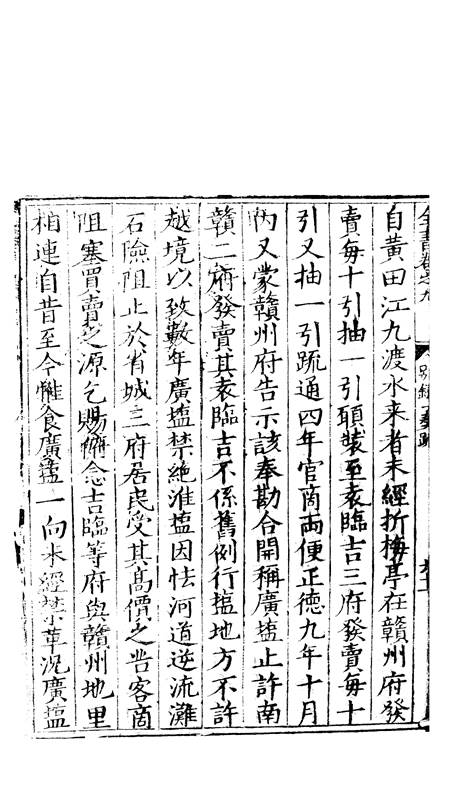 全書卷之九
別錄 奏疏
自黃田江九渡水来者未經折梅亭在贛州府發
賣每十引抽一引頭裝至袁臨吉三府發賣每十
引又抽一引䟽通四年官商兩便正德九年十月
内又蒙贛州府告示該奉勘合開稱廣塩止許南
贛二府發賣其袁臨吉不係舊例行塩地方不許
越境以致數年廣塩禁絶淮塩因怯河道逆流灘
石險阻止於省城三府居民受其髙價之苦客商
阻塞買賣之源乞賜憐念吉臨等府與贛州地里
相連自昔至今惟食廣塩一向未經禁革况廣塩